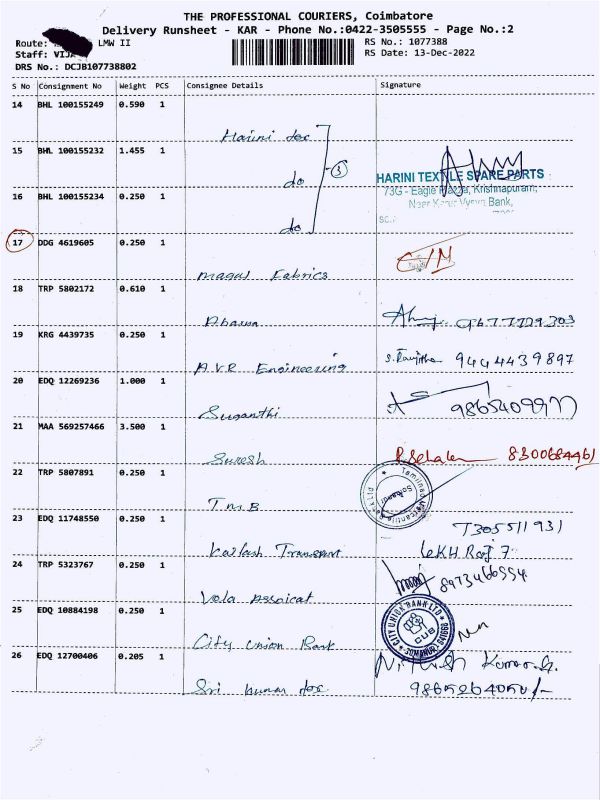 THE PROFESSIONAL COURIERS, Coimbatore
Delivery Runsheet - KAR - Phone No.:0422-3505555 - Page No.:2
Route: LMW II
RS No.: 1077388
Staff: VIJA
RS Date: 13-Dec-2022
DRS No.: DCJB107738802
S No Consignment No Weight PCS Consignee Details Signature
14 BHL 100155249 0.590 1
Harini tex
15 BHL 100155232 1.455 1
do
3
HARINI TEXTILE SPARE PARTS
73G - Eagle Plaza, Krishnapuram,
16 BHL 100155234 0.250 1
Near Karur Vysya Bank,
do
17 DDG 4619605 0.250 1
Magal Fabrics
18 TRP 5802172 0.610 1
9677729303
19 KRG 4439735 0.250 1
A.V.R Engineering
9444439897
20 EDQ 12269236 1.000 1
Suganthi
21 MAA 569257466 3.500 1
Suresh
8300684461
22 TRP 5807891 0.250 1
T.M.B
Tamilnad Mercantile Bank Ltd
23 EDQ 11748550 0.250 1
7305511931
Kailash Transport
24 TRP 5323767 0.250 1
8973466554
25 EDQ 10884198 0.250 1
City Union Bank
CITY UNION BANK LTD
CUB
26 EDQ 12700406 0.205 1
Nithish Kumar.G.
Sri kumar tex